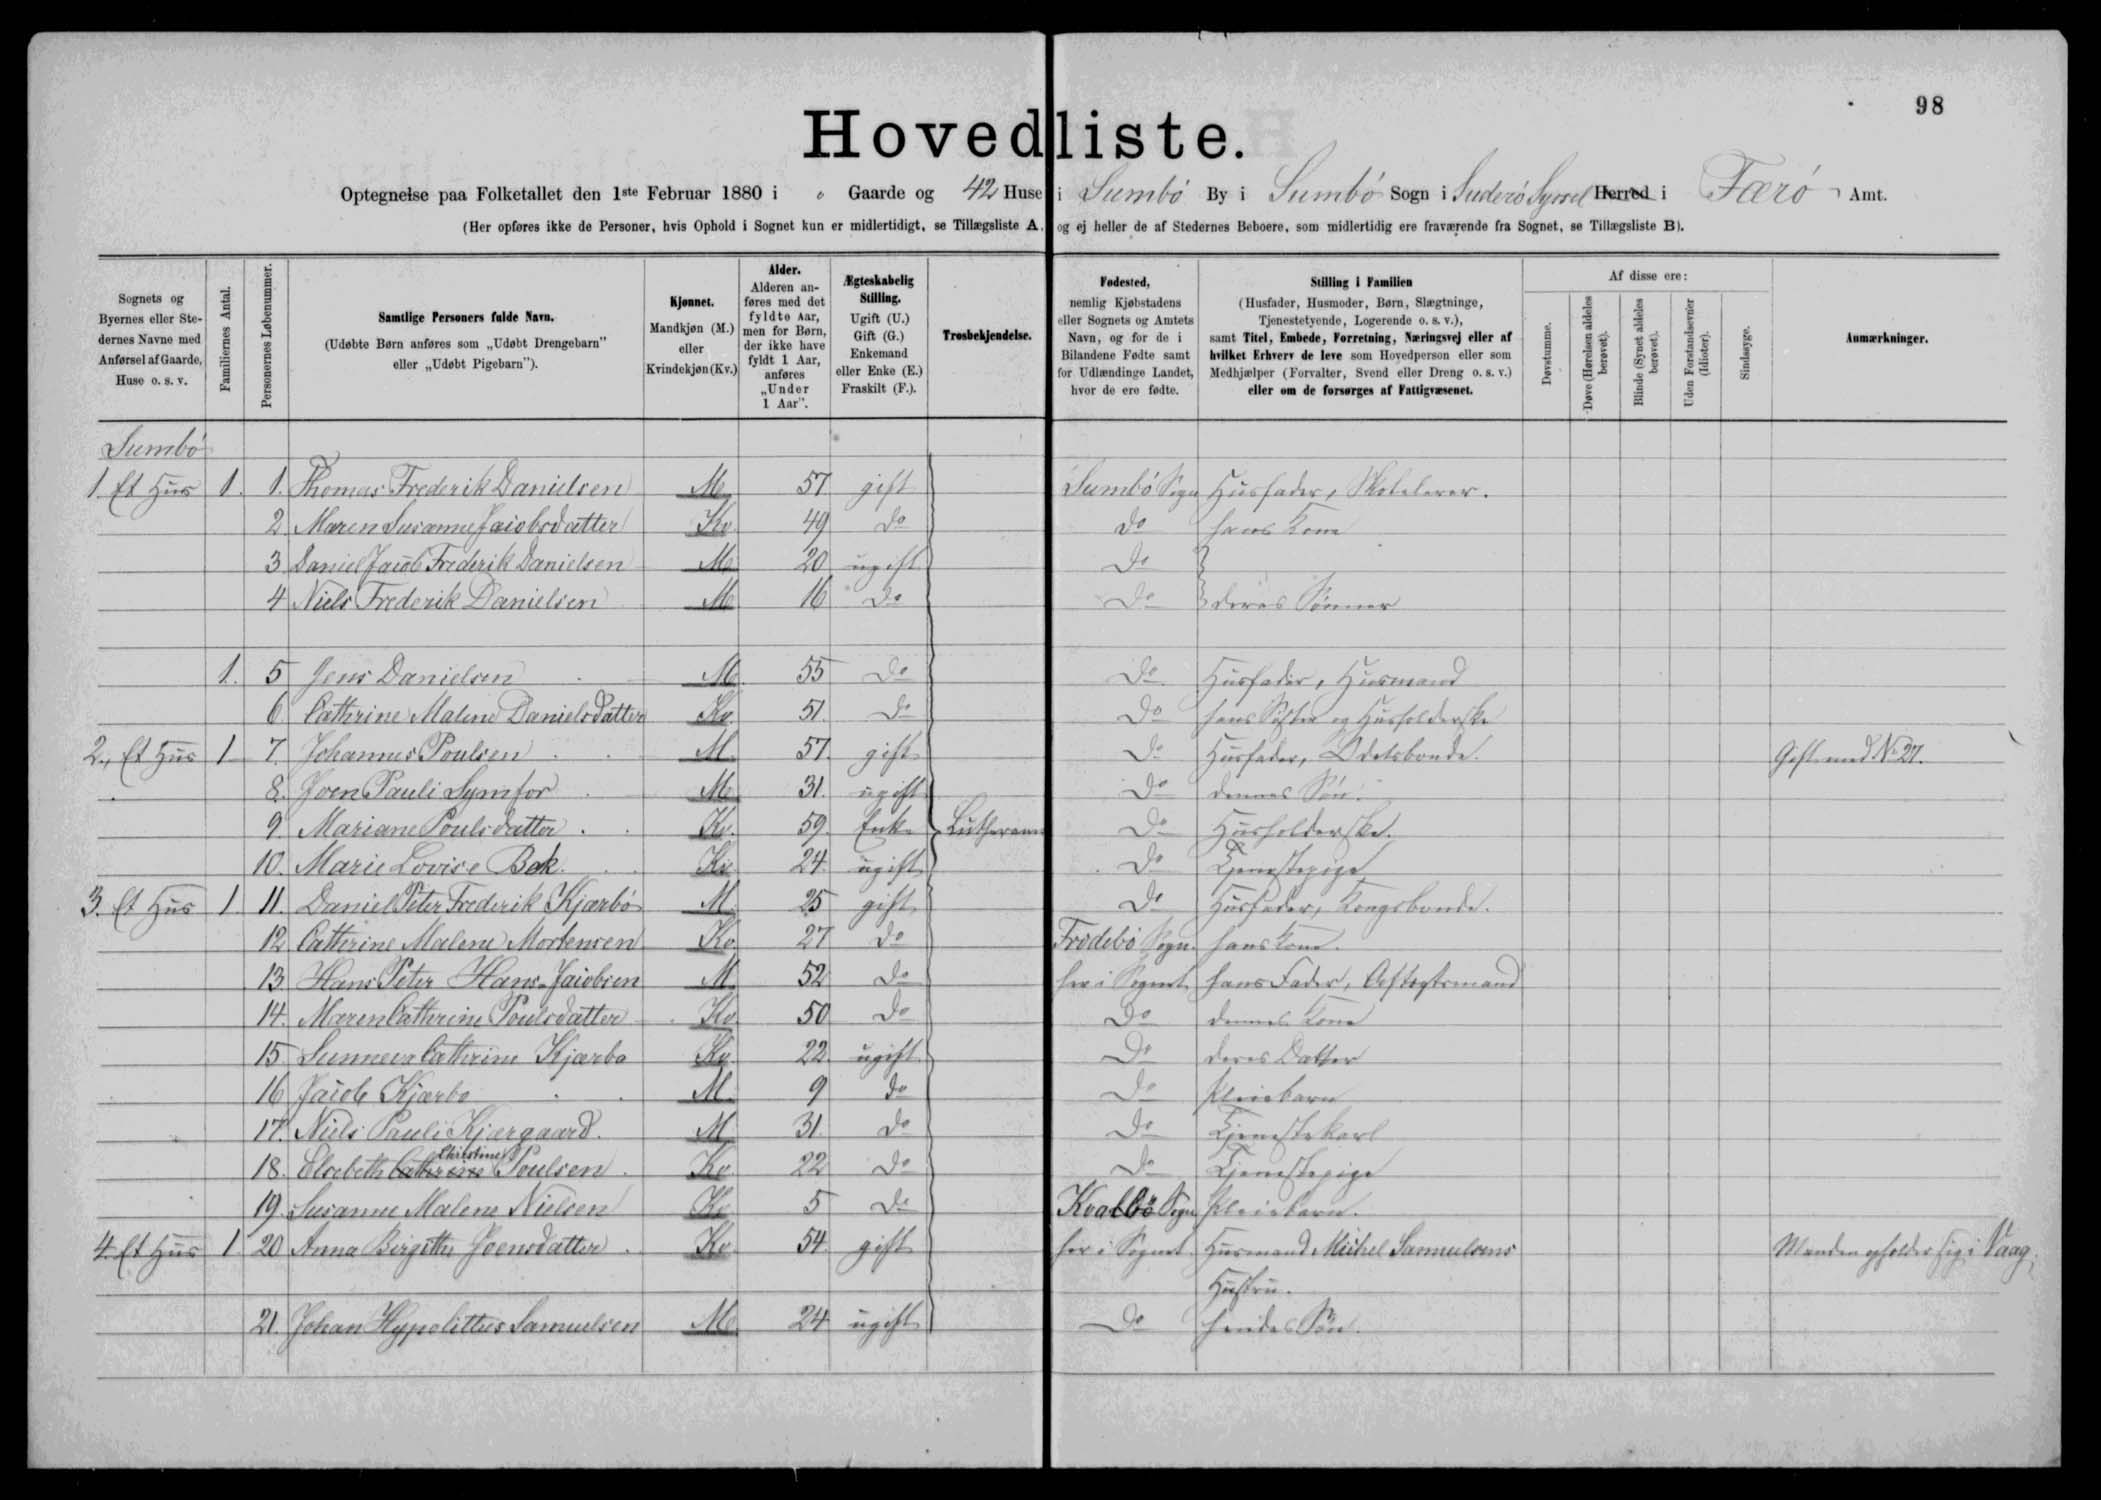 98
Hovedliste.
Optegnelse paa Folketallet den 1ste Februar 1880 i " Gaarde og 42 Huse i Sumbö By i Sumbö Sogn i Suderö Syssel Herred i Færö Amt.
(Her opføres ikke de Personer, hvis Ophold i Sognet kun er midlertidigt, se Tillægsliste A, og ej heller de af Stedernes Beboere, som midlertidig ere fraværende fra Sognet, se Tillægsliste B).
Sognets og Byernes eller Stedernes Navne med Anførsel af Gaarde, Huse o. s. v.
Familiernes Antal.
Personernes Løbenummer.
Samtlige Personers fulde Navn.
(Udøbte Børn anføres som „Udøbt Drengebarn" eller „Udøbt Pigebarn").
Kjønnet.
Mandkjøn (M.) eller Kvindekjøn (Kv.)
Alder.
Alderen anføres med det fyldte Aar, men for Børn, der ikke have fyldt 1 Aar, anføres „Under 1 Aar".
Ægteskabelig Stilling.
Ugift (U.) Gift (G.) Enkemand eller Enke (E.) Fraskilt (F.).
Trosbekjendelse.
Fødested,
nemlig Kjøbstadens eller Sognets og Amtets Navn, og for de i Bilandene Fødte samt for Udlændinge Landet, hvor de ere fødte.
Stilling i Familien
(Husfader, Husmoder, Børn, Slægtninge, Tjenestetyende, Logerende o. s. v.),
samt Titel, Embede, Forretning, Næringsvej eller af hvilket Erhverv de leve som Hovedperson eller som Medhjælper (Forvalter, Svend eller Dreng o. s. v.) eller om de forsørges af Fattigvæsenet.
Af disse ere:
Døvstumme.
Døve (Hørelsen aldeles berøvet).
Blinde (Synet aldeles berøvet).
Uden Forstandsevner (Idioter).
Sindssyge.
Anmærkninger.
Sumbö
1. Et Hus 1. 1. Thomas Frederik Danielsen M 57 gift Sumbö Sogn Husfader, Skolelærer.
2 Maren Susanne Jacobsdatter Kv. 49 do do hans Kone
3 Daniel Jacob Frederik Danielsen M 20 ugift do
4 Niels Frederik Danielsen M 16 do do deres Sönner
1. 5 Jens Danielsen M 55 do do Husfader, Husmand
6 Cathrine Malene Danielsdatter Kv. 51. do do hans Söster og Husholderske
2., Et Hus 1 7. Johannes Poulsen M 57. gift do Husfader, Odelsbonde. Gift med No 27.
8. Joen Pauli Symfor M 31. ugift do dennes Sön.
9. Mariane Poulsdatter Kv. 59. Enke Lutheraner do Husholderske.
10. Marie Lovise Bek Kv 24 ugift do Tjenestepige
3. Et Hus 1 11. Daniel Peter Frederik Kjærbö M 25 gift do Husfader, Kongsbonde.
12 Cathrine Malene Mortensen Kv. 27 do Frodebö Sogn. hans Kone.
13 Hans Peter Hans-Jacobsen M 52 do her i Sognet hans Fader, Aftægtsmand
14. Maren Cathrine Poulsdatter Kv 50 do do dennes Kone
15 Sunneva Cathrine Kjærbo Kv. 22 ugift do deres Datter
16 Jacob Kjærbo M. 9 do do Pleiebarn
17. Niels Pauli Kjærgaard. M 31. do do Tjenestekarl
18. Elsebeth Cathrine Christine Poulsen Kv. 22 do do Tjenestepige
19. Susanne Malene Nielsen Kv 5 do Kvalbö Sogn Pleiebarn.
4. Et Hus 1 20 Anna Birgithe Joensdatter Kv. 54. gift her i Sognet. Husmand Michel Samuelsens Manden opholder sig i Vaag.
Hustru.
21. Johan Hypolittus Samuelsen M 24 ugift do hendes Sön.